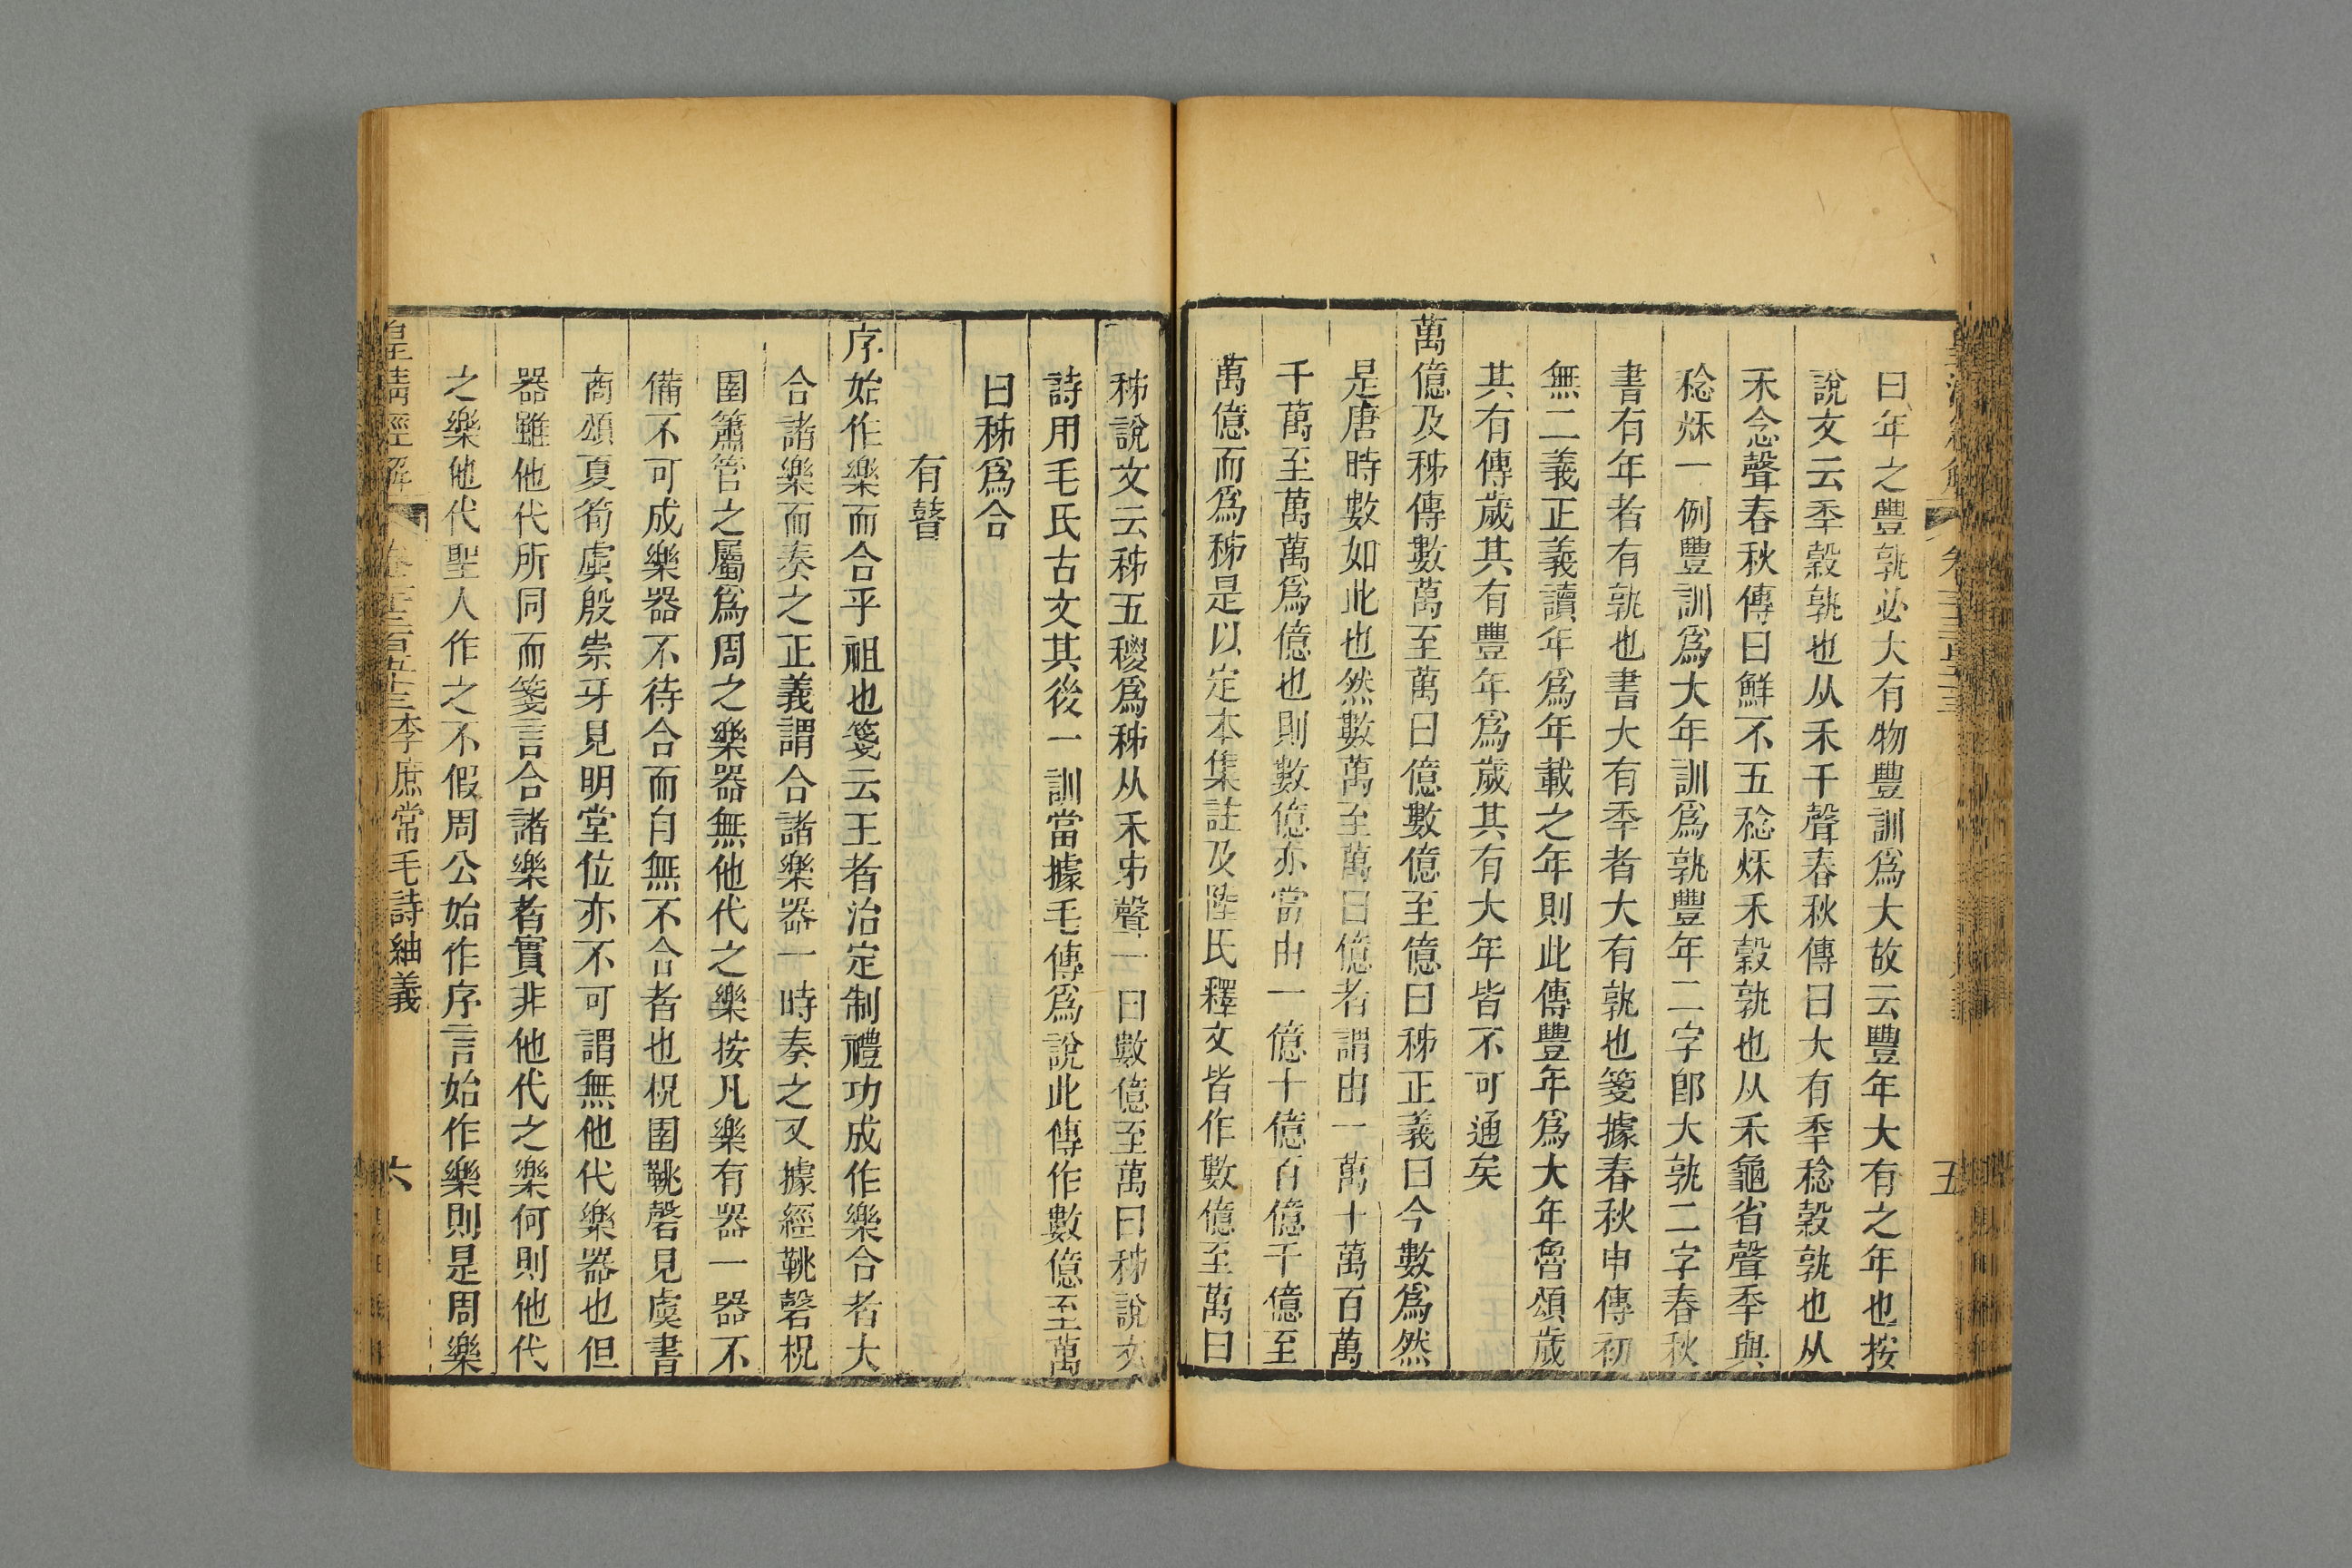 曰年之豐孰必大有物豐訓爲大故云豐年大有之年也按
說文云秊穀孰也从禾千聲春秋傳曰大有秊稔穀孰也从
禾念聲春秋傳曰鮮不五稔秌禾穀孰也从禾龜省聲秊與
稔秌一例豐訓爲大年訓爲孰豐年二字卽大孰二字春秋
書有年者有孰也書大有秊者大有孰也箋據春秋申傳初
無二義正義讀年爲年載之年則此傳豐年爲大年魯頌歲
其有傳歲其有豐年爲歲其有大年皆不可通矣
萬億及秭傳數萬至萬曰億數億至億曰秭正義曰今數爲然
是唐時數如此也然數萬至萬曰億者謂由一萬十萬百萬
千萬至萬萬爲億也則數億亦當由一億十億百億千億至
萬億而爲秭是以定本集註及陸氏釋文皆作數億至萬曰
五
秭說文云秭五稯爲秭从禾𠂔聲一曰數億至萬曰秭說文
詩用毛氏古文其後一訓當據毛傳爲說此傳作數億至萬
曰秭爲合
有瞽
序始作樂而合乎祖也箋云王者治定制禮功成作樂合者大
合諸樂而奏之正義謂合諸樂器一時奏之又據經鞉磬柷
圉簫管之屬爲周之樂器無他代之樂按凡樂有器一器不
備不可成樂器不待合而自無不合者也柷圉鞉磬見虞書
商頌夏筍虡殷崇牙見明堂位亦不可謂無他代樂器也但
器雖他代所同而箋言合諸樂者實非他代之樂何則他代
之樂他代聖人作之不假周公始作序言始作樂則是周樂
皇淸經解
卷一千三百五十三李庶常毛詩紬義
六